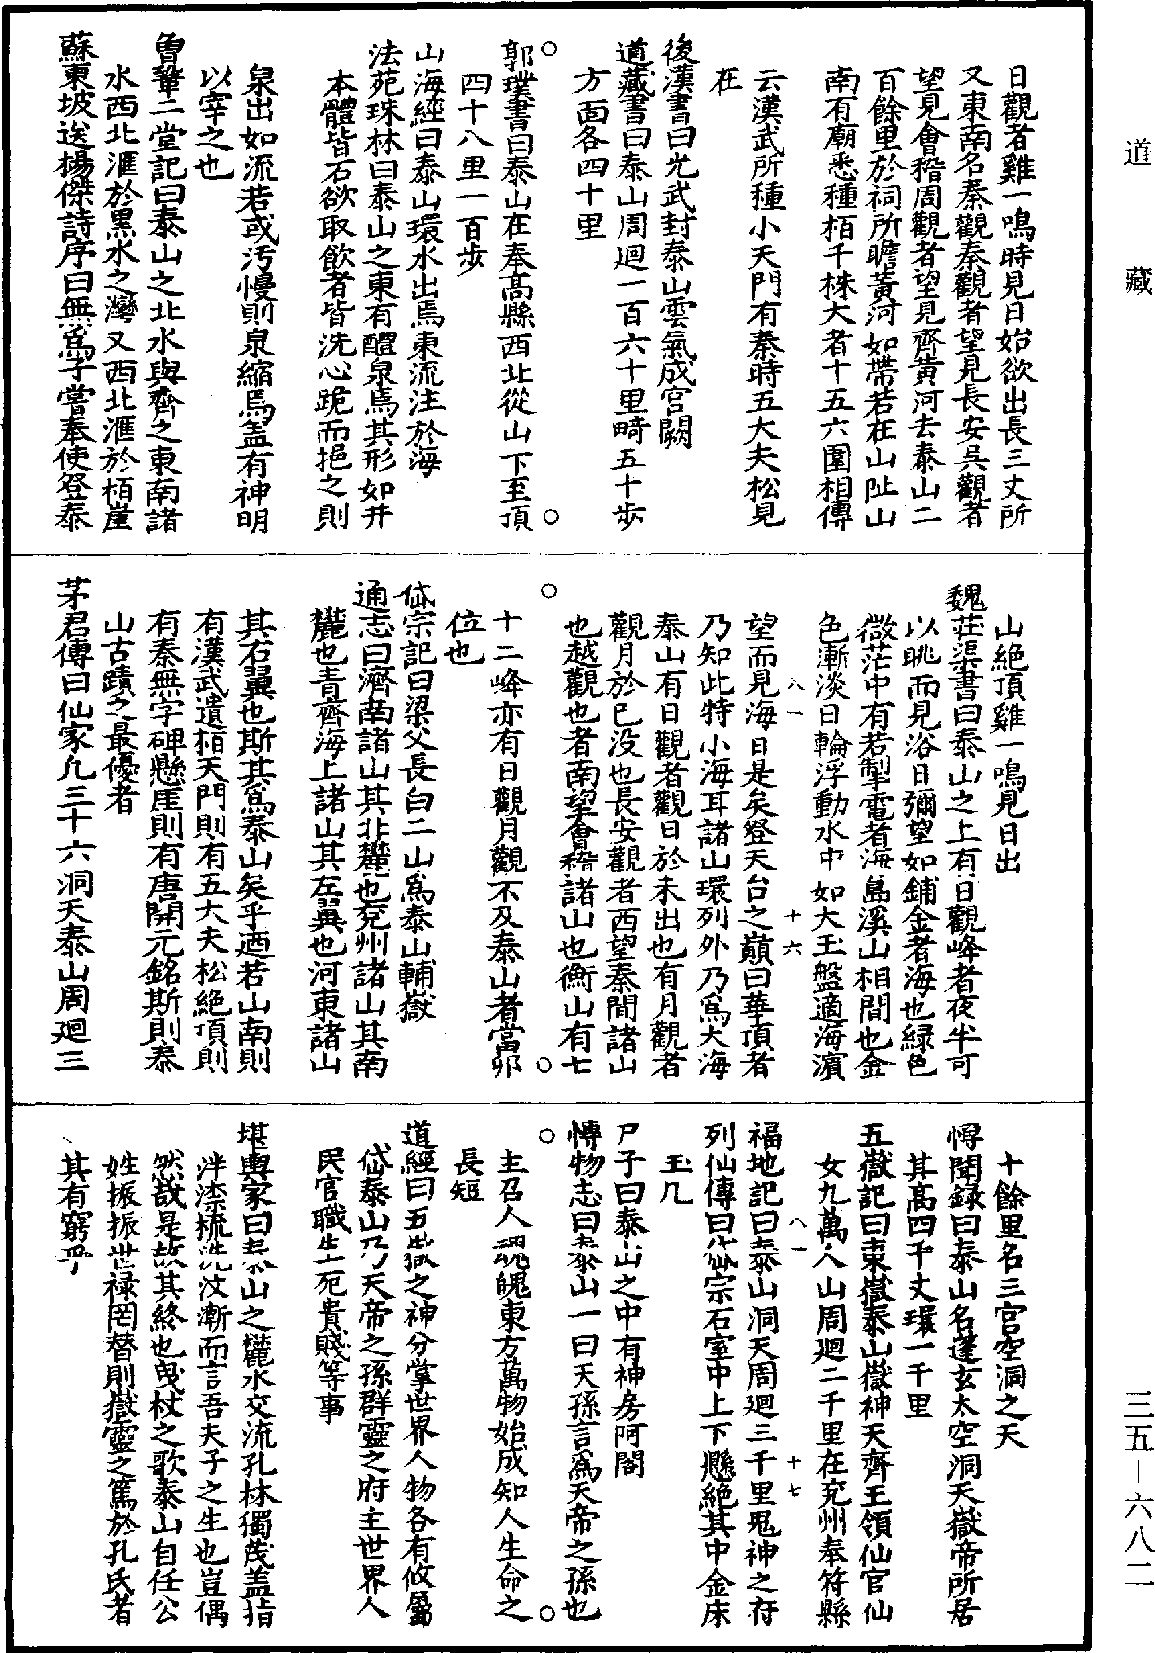 道藏
三五—六八二
日觀者雞一鳴時見日始欲出長三丈所
又東南名秦觀秦觀者望見長安吳觀者
望見會稽周觀者望見齊黃河去泰山二
百餘里於祠所瞻黃河如帶若在山阯山
南有廟悉種栢千株大者十五六圍相傳
云漢武所種小天門有秦時五大夫松見
在
後漢書曰光武封泰山雲氣成宮闕
道藏書曰泰山周迴一百六十里畸五十步
方面各四十里
○ ○
郭璞書曰泰山在奉高縣西北從山下至頂
四十八里一百步
山海經曰泰山環水出焉東流注於海
法苑珠林曰泰山之東有醴泉焉其形如井
本體皆石欲取飲者皆洗心跪而挹之則
泉出如流若或汚慢則泉縮焉盖有神明
以宰之也
魯鞏二堂記曰泰山之北水與齊之東南諸
水西北滙於黑水之灣又西北滙於栢崖
蘇東坡送楊傑詩序曰無爲子嘗奉使登泰
山絶頂雞一鳴見日出
魏莊渠書曰泰山之上有日觀峰者夜半可
以眺而見浴日彌望如鋪金者海也緑色
微茫中有若掣電者海島溪山相間也金
色漸淡日輪浮動水中如大玉盤適海濱
八一 十六
望而見海日是矣登天台之巔曰華頂者
乃知此特小海耳諸山環列外乃爲大海
泰山有日觀者觀日於未出也有月觀者
觀月於已没也長安觀者西望秦間諸山
也越觀也者南望會稽諸山也衡山有七
○ ○
十二峰亦有日觀月觀不及泰山者當卯
位也
岱宗記曰梁父長白二山爲泰山輔嶽
通志曰濟南諸山其北麓也兗州諸山其南
麓也青齊海上諸山其左翼也河東諸山
其右翼也斯其爲泰山矣乎迺若山南則
有漢武遺栢天門則有五大夫松絶頂則
有秦無字碑懸崖則有唐開元銘斯則泰
山古蹟之最優者
茅君傳曰仙家凡三十六洞天泰山周廻三
十餘里名三宮空洞之天
博聞録曰泰山名蓬玄太空洞天嶽帝所居
其高四千丈環一千里
五嶽記曰東嶽泰山嶽神天齊王領仙官仙
女九萬人山周迴二千里在兗州奉符縣
八一 十七
福地記曰泰山洞天周迴三千里鬼神之府
列仙傳曰岱宗石室中上下懸絶其中金床
玉几
尸子曰泰山之中有神房阿閣
博物志曰泰山一曰天孫言爲天帝之孫也
○ ○
主召人魂魄東方萬物始成知人生命之
長短
道經曰五嶽之神分掌世界人物各有攸屬
岱泰山乃天帝之孫群靈之府主世界人
民官職生死貴賤等事
堪輿家曰泰山之麓水交流孔林獨茂盖指
洙泗洸汶漸而言吾夫子之生也豈偶
然哉是故其終也曳杖之歌泰山自任公
姓振振世禄罔替則嶽靈之篤於孔氏者
其有窮乎